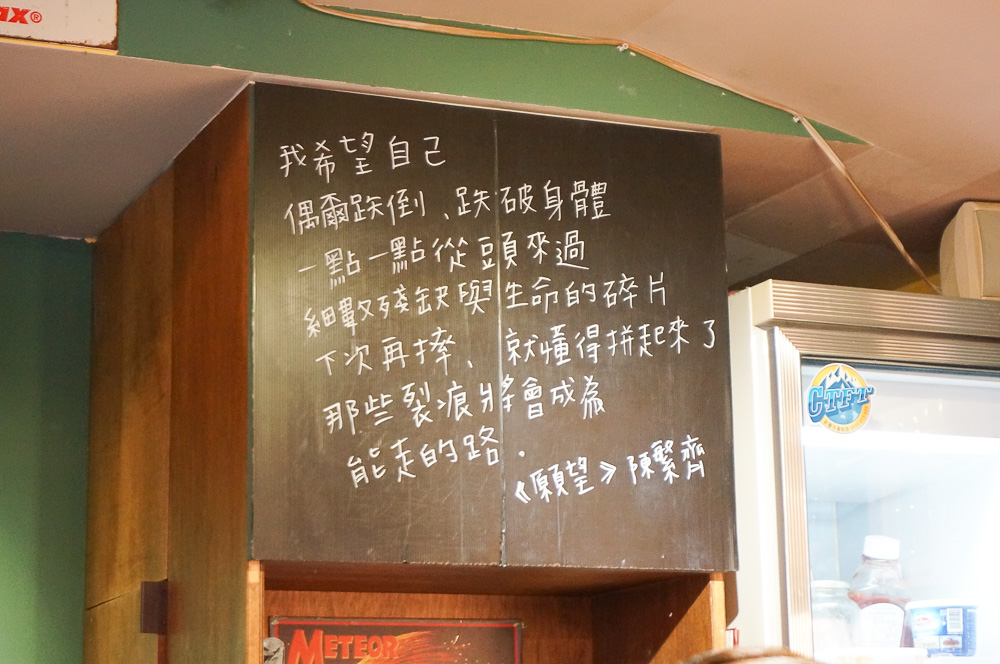 ax®
我希望自己
偶爾跌倒、跌破身體
一點一點從頭來過
細數殘缺與生命的碎片
下次再摔、就懂得拼起來了
那些裂痕將會成為
能走的路.
《願望》陳繁齊
CTFT
METEOR